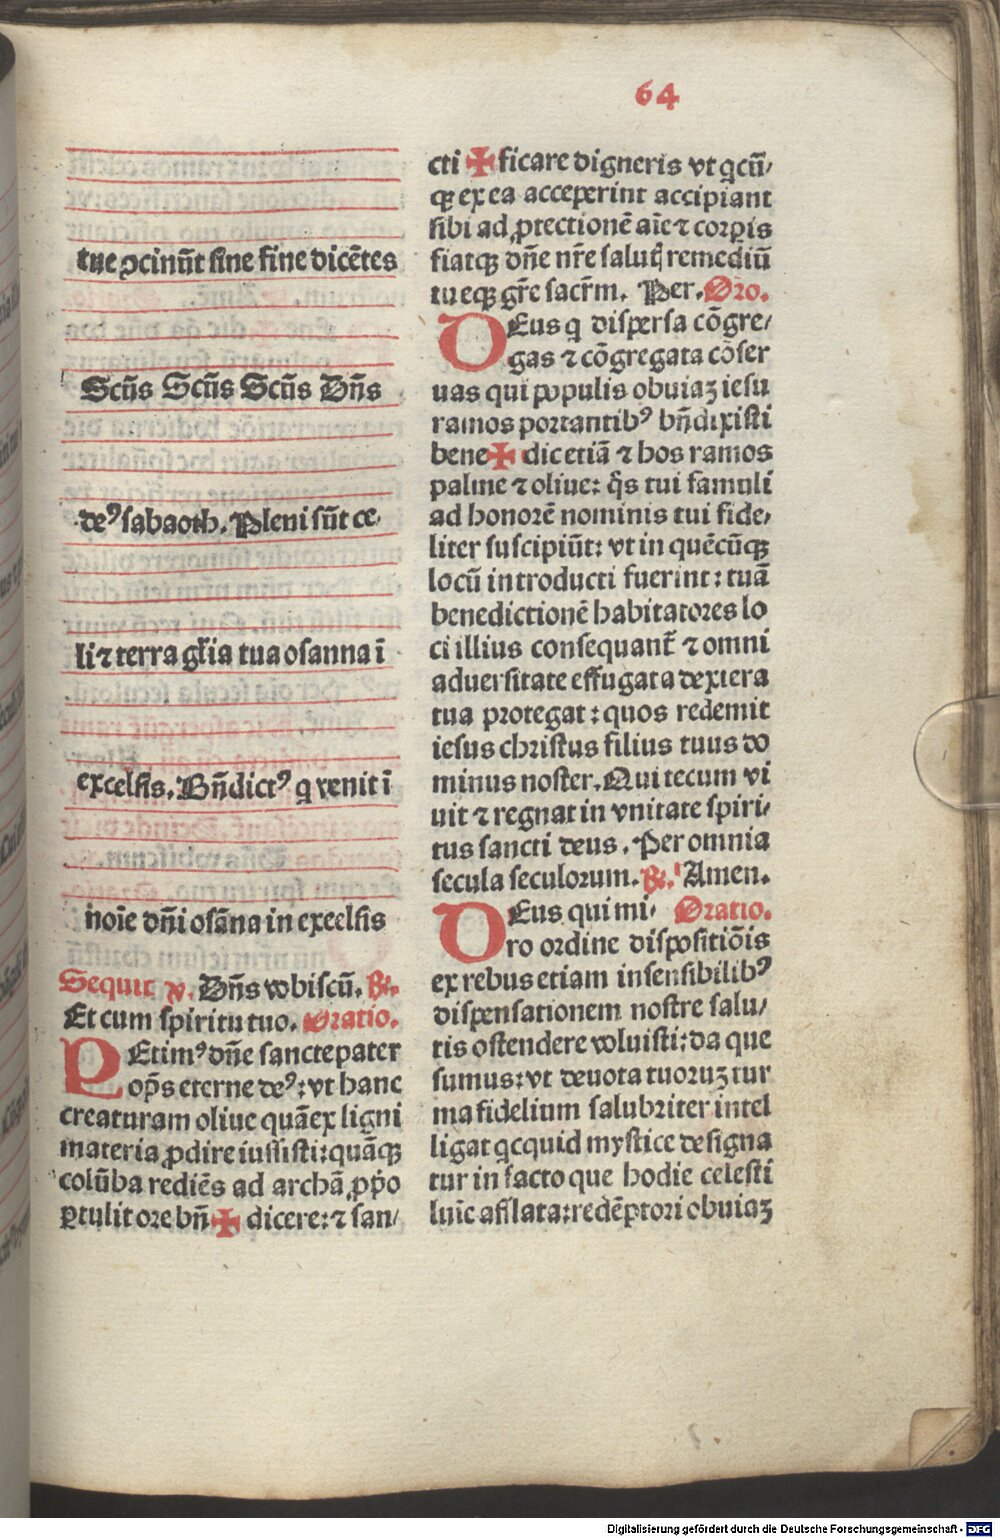 64
tue ꝓcinūt sine fine dicētes
Scūs Scūs Scūs Dn̄s
deꝰ sabaoth. Pleni sūt ce-
li ⁊ terra gl̄ia tua osanna ī
excelsis. Bn̄dictꝰ q venit ī
noīe dn̄i osāna in excelsis
Sequit ℣. Dn̄s vobiscū. ℟.
Et cum spiritu tuo. Oratio.
PEtimꝰ dn̄e sancte pater
op̄s eterne deꝰ: vt hanc
creaturam oliue quā ex ligni
materia ꝓdire iussisti: quāqꝫ
colūba rediēs ad archā ꝓp̄o
ꝑtulit ore bn̄ ✠ dicere: ⁊ san/
cti ✠ ficare digneris vt qcū/
qꝫ ex ea acceperint accipiant
sibi ad ꝓtectionē aīe ⁊ corꝑis
fiatqꝫ dn̄e nr̄e salutꝭ remediū
tueqꝫ gr̄e sacr̄m. Per. Oro.
DEus q dispersa cōgre/
gas ⁊ cōgregata cōser
uas qui populis obuiaꝫ iesu
ramos portantibꝰ bn̄dixisti
bene ✠ dic etiā ⁊ hos ramos
palme ⁊ oliue: q̄s tui famuli
ad honorē nominis tui fide/
liter suscipiūt: vt in quēcūqꝫ
locū introducti fuerint: tuā
benedictionē habitatores lo
ci illius consequant̄ ⁊ omni
aduersitate effugata dextera
tua protegat: quos redemit
iesus christus filius tuus do
minus noster. Qui tecum vi
uit ⁊ regnat in vnitate spiri/
tus sancti deus. Per omnia
secula seculorum. ℟. Amen.
DEus qui mi/ Oratio.
ro ordine dispositiōis
ex rebus etiam insensibilibꝰ
dispensationem nostre salu/
tis ostendere voluisti: da que
sumus: vt deuota tuoruꝫ tur
ma fidelium salubriter intel
ligat qcquid mystice designa
tur in facto que hodie celesti
luīe afflata: redēptori obuiaꝫ
Digitalisierung gefördert durch die Deutsche Forschungsgemeinschaft - DFG